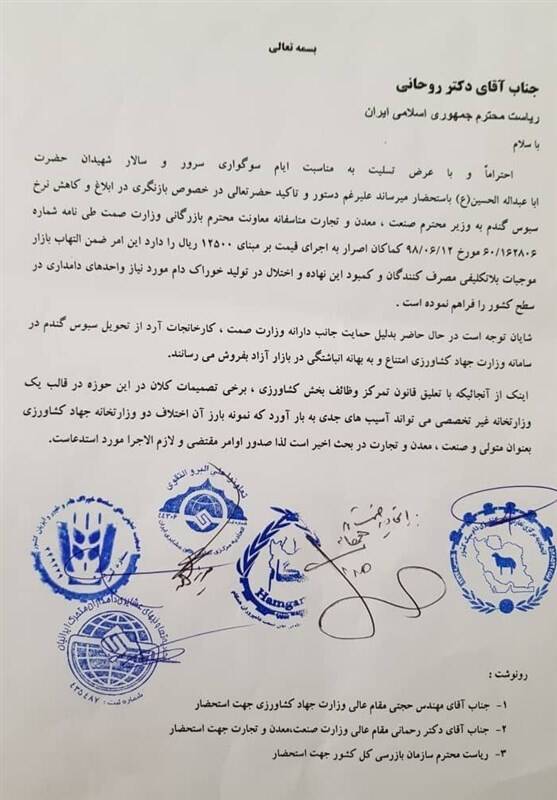 بسمه تعالی
جناب آقای دکتر روحانی
ریاست محترم جمهوری اسلامی ایران
با سلام
احتراماً و با عرض تسلیت به مناسبت ایام سوگواری سرور و سالار شهیدان حضرت
ابا عبداله الحسین(ع) باستحضار میرساند علیرغم دستور و تاکید حضرتعالی در خصوص بازنگری در ابلاغ و کاهش نرخ
سبوس گندم به وزیر محترم صنعت ، معدن و تجارت متاسفانه معاونت محترم بازرگانی وزارت صمت طی نامه شماره
۶۰/۱۶۲۸۰۶ مورخ ۹۸/۰۶/۱۲ کماکان اصرار به اجرای قیمت بر مبنای ۱۲۵۰۰ ریال را دارد این امر ضمن التهاب بازار
موجبات بلاتکلیفی مصرف کنندگان و کمبود این نهاده و اختلال در تولید خوراک دام مورد نیاز واحدهای دامداری در
سطح کشور را فراهم نموده است .
شایان توجه است در حال حاضر بدلیل حمایت جانب دارانه وزارت صمت ، کارخانجات آرد از تحویل سبوس گندم در
سامانه وزارت جهاد کشاورزی امتناع و به بهانه انباشتگی در بازار آزاد بفروش می رسانند.
اینک از آنجائیکه با تعلیق قانون تمرکز وظائف بخش کشاورزی ، برخی تصمیمات کلان در این حوزه در قالب یک
وزارتخانه غیر تخصصی می تواند آسیب های جدی به بار آورد که نمونه بارز آن اختلاف دو وزارتخانه جهاد کشاورزی
بعنوان متولی و صنعت ، معدن و تجارت در بحث اخیر است لذا صدور اوامر مقتضی و لازم الاجرا مورد استدعاست.
تعاونوا علی البر و التقوی
۴۴۳۰۶
Hamgar
شماره ثبت : ۴۳۵۴۸۷
رونوشت :
۱- جناب آقای مهندس حجتی مقام عالی وزارت جهاد کشاورزی جهت استحضار
۲- جناب آقای دکتر رحمانی مقام عالی وزارت صنعت،معدن و تجارت جهت استحضار
۳- ریاست محترم سازمان بازرسی کل کشور جهت استحضار